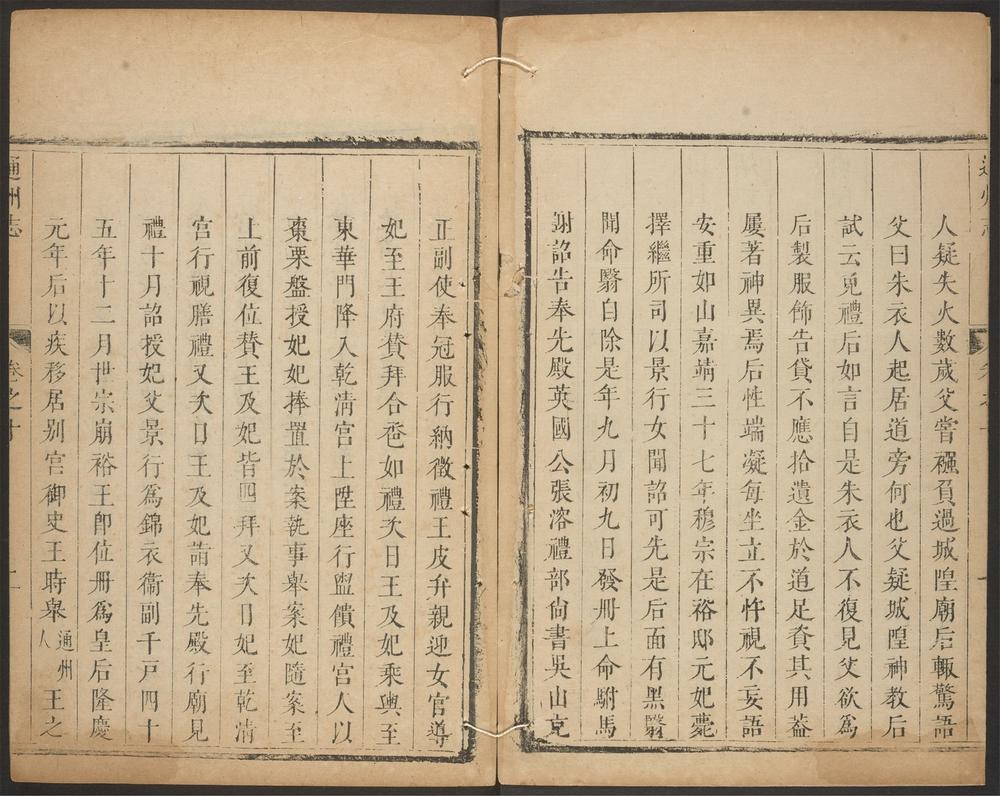 人疑失火數歲父嘗襁負過城隍廟后輙驚語
父曰朱衣人起居道旁何也父疑城隍神教后
試云免禮后如言自是朱衣人不復見父欲爲
后製服飾告貸不應拾遺金於道足資其用葢
屢著神異焉后性端凝每坐立不忤視不妄語
安重如山嘉靖三十七年穆宗在裕邸元妃薨
擇繼所司以景行女聞詔可先是后面有黑翳
聞命翳自除是年九月初九日發冊上命駙馬
謝詔告奉先殿英國公張溶禮部尙書吳山充
正副使奉冠服行納徵禮王皮弁親迎女官導
妃至王府贊拜合巹如禮次日王及妃乘輿至
東華門降入乾淸宫上陞座行盥饋禮宫人以
棗栗盤授妃妃捧置於案執事舉案妃隨案至
上前復位贊王及妃皆四拜又次日妃至乾淸
宫行視膳禮又次日王及妃詣奉先殿行廟見
禮十月詔授妃父景行爲錦衣衞副千戸四十
五年十二月世宗崩裕王卽位冊爲皇后隆慶
元年后以疾移居别宫御史王時舉通州人王之
通州志
卷之十
二